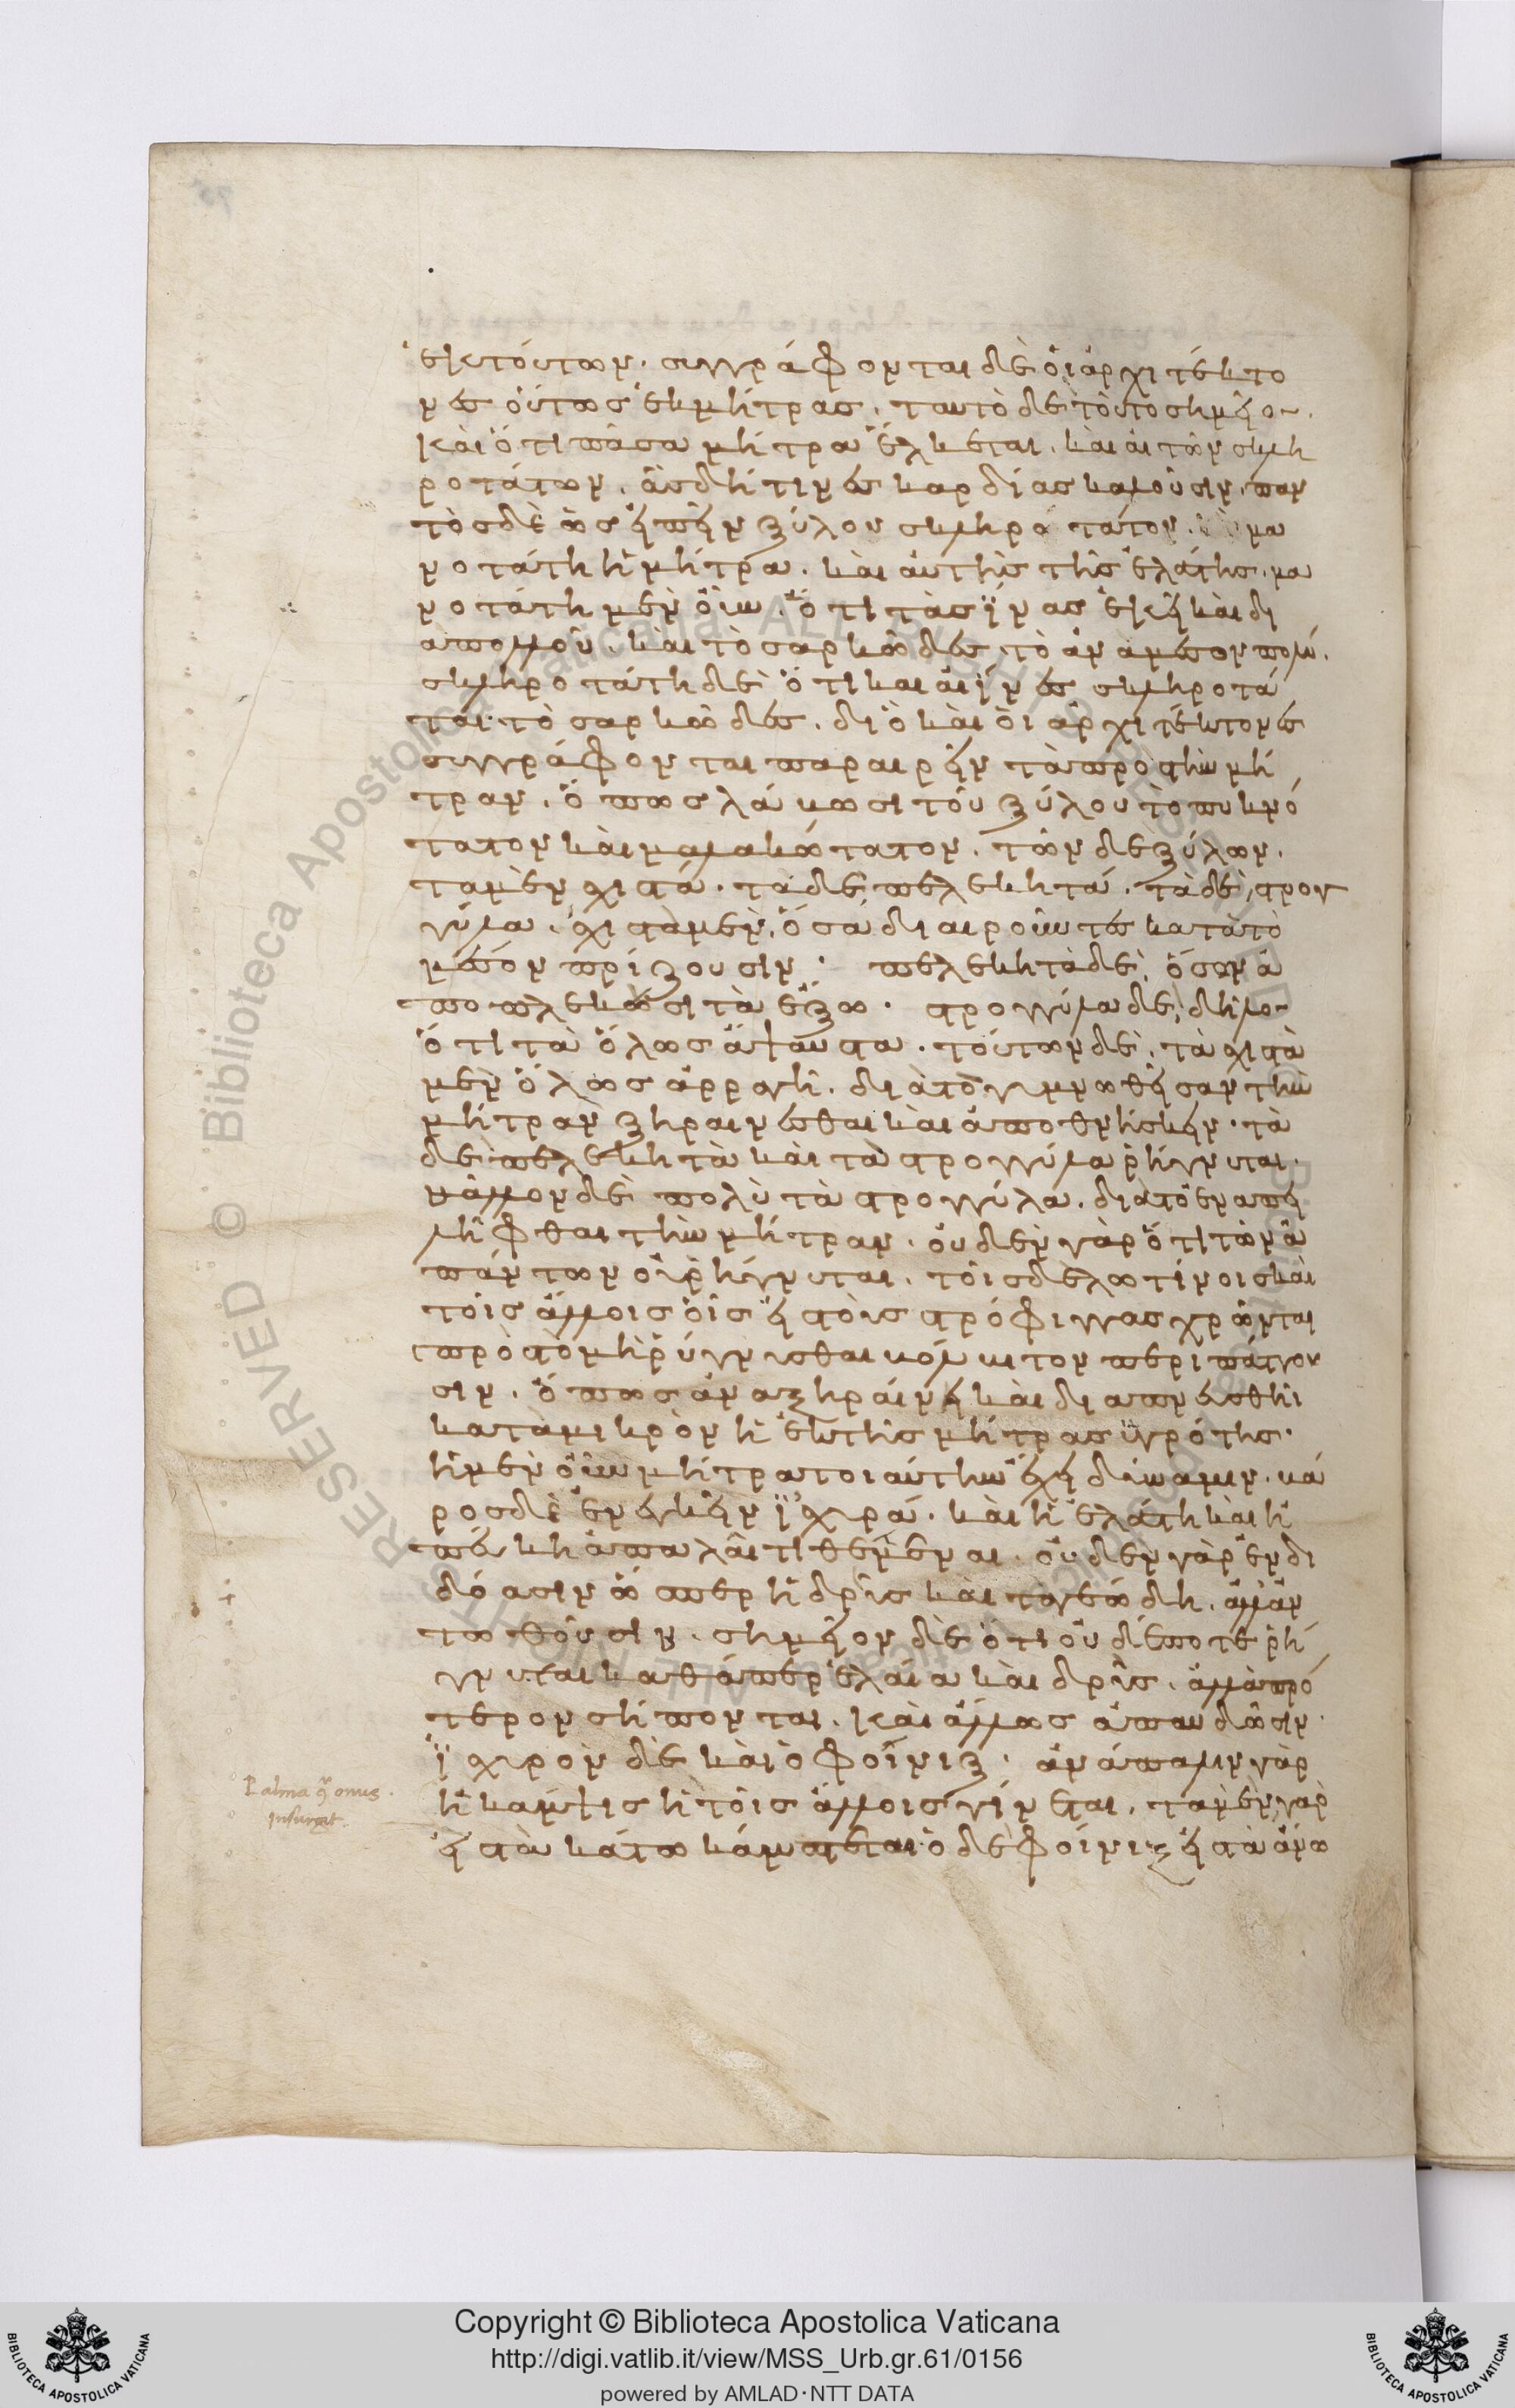 ἐκ τούτων. συγγράφονται δὲ οἱ ἀρχιτέκτο
νες οὕτως ἐκ μήτρας. ταυτὸ δὲ τοῦτο σημεῖον.
καὶ ὅτι πᾶσα μήτρα ἕλκεται. καὶ αἱ τῶν σκλη
ροτάτων. ἃς δή τινες καρδίας καλοῦσιν. παν
τὸς δὲ ὡς εἰπεῖν ξύλου σκληροτάτου. μα
νοτάτη ἡ μήτρα. καὶ αὐτῆς τῆς ἐλάτης. μα
νοτάτη μὲν οὖν. ὅτι τὰς ἶνας ἔχει καὶ δι
απολλοῦ. καὶ τὸ σαρκῶδες τὸ ἀναμέσον πολύ.
σκληροτάτη δὲ ὅτι καὶ αἱ ἶνες σκληρότα
ται τὸ σαρκῶδες. διὸ καὶ οἱ ἀρχιτέκτονες
συγγράφονται παραιρεῖν τὰ πρὸς τὴν μή
τραν. ὅπως λάβωσι τοῦ ξύλου τὸ πυκνό
τατον καὶ μαλακώτατον. τῶν δὲ ξύλων.
τα μὲν σχιστά. τὰ δὲ πελεκητά. τὰ δὲ στρογ
γύλα. σχιστὰ μὲν, ὅσα διαιροῦντες κατὰ τὸ
μέσον πρίζουσιν. πελεκητὰ δὲ, ὅσων ἀ
ποπλεκῶσι τὰ ἔξω. στρογγύλα δὲ, δῆλον
ὅτι τὰ ὅλως ἄψαυστα. τούτων δὲ, τὰ σχιστὰ
μὲν ὅλως ἀρραγῆ. διὰ τὸ γυμνωθεῖσαν τὴν
μήτραν ξηραίνεσθαι καὶ ἀποθνήσκειν. τὰ
δὲ πελεκητὰ καὶ τὰ στρογγύλα ῥήγνυται.
μᾶλλον δὲ πολὺ τὰ στρογγύλα. διὰ τὸ ἐναπει
λῆφθαι τὴν μήτραν. οὐδὲν γὰρ ὅτι τῶν ἁ
πάντων οὐ ῥήγνυται. τοῖς δὲ λωτίνοις καὶ
τοῖς ἄλλοις οἷς εἰς τοὺς στρόφιγγας χρῶνται
πρὸς τὸ μὴ ῥύγνυσθαι βόλβιτον περιπάττου
σιν. ὅπως ἀναξηραίνη καὶ διαπνευσθῆι
κατὰ μικρὸν ἡ ἐκ τῆς μήτρας ὑγρότης.
ἡ μὲν οὖν μήτρα τοιαύτην ἔχει δύναμιν. βά
ρος δὲ ἐνεγκεῖν ἰσχυρά. καὶ ἡ ἐλάτη καὶ ἡ
πεύκη ἁπαλαὶ τιθέμεναι. οὐδὲν γὰρ ἐνδι
δόασιν ὥσπερ ἡ δρῦς καὶ τα γεώδη. ἀλλ' ἀν
τωθοῦσιν. σημεῖον δὲ ὅτι οὐδέποτε ῥή
γνυται καθάπερ ἐλαία καὶ δρῦς. ἀλλὰ πρό
τερον σήπονται. καὶ ἄλλως ἀπαυδῶσιν.
ἰσχυρὸν δὲ καὶ ὁ φοίνιξ. ἀνάπαλιν γὰρ
ἡ κάμψις ἢ τοῖς ἄλλοις γίνεται. τὰ μὲν γὰρ
εἰς τὰ κάτω κάμπτεται ὁ δὲ φοίνιξ εἰς τὰ ἄνω
Palma
insurgit.
Copyright © Biblioteca Apostolica Vaticana
http://digi.vatlib.it/view/MSS_Urb.gr.61/0156
powered by AMLAD·NTT DATA